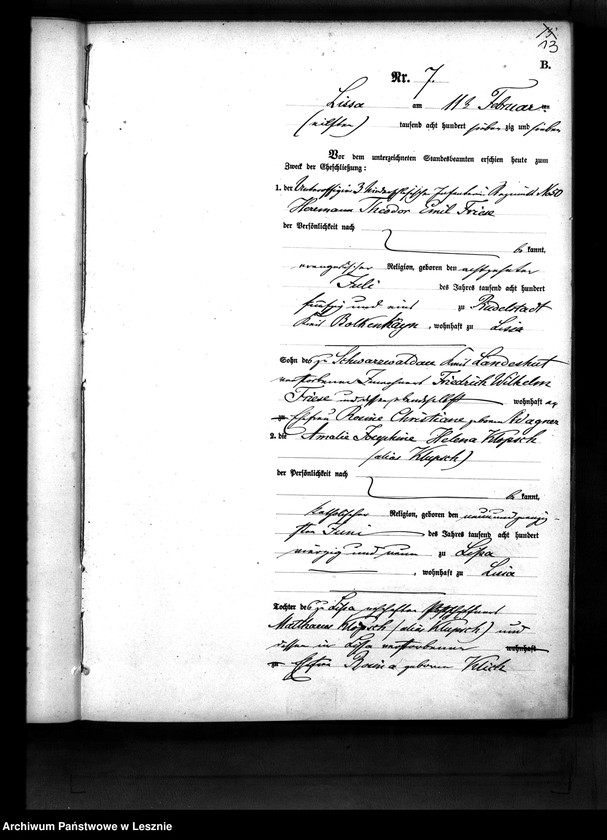 13
B.
Nr. 7.
Lissa am 11ten Februar ein
(eilften) tausend acht hundert sieben zig und sieben
Vor dem unterzeichneten Standesbeamten erschien heute zum
Zweck der Eheschließung:
1. der Unteroffizier 3. Niederschlesischen Infanterie Regiments No 50
Herrmann Theodor Emil Friese
der Persönlichkeit nach
be kannt,
evangelischer Religion, geboren den achtzehnten
Juli des Jahres tausend acht hundert
fünfzig und eins zu Rudelstadt
Kreis Bolkenhayn, wohnhaft zu Lissa
Sohn des zu Schwarzwaldau Kreis Landeshut
verstorbenen Friedrich Wilhelm
Friese und wohnhaft
Ehefrau Rosine Christiane geborenen Wagner
2. die Amalie Josephine Helena Klopsch
(alias Klupsch)
der Persönlichkeit nach
be kannt,
katholischer Religion, geboren den neunundzwanzig-
sten Juni des Jahres tausend acht hundert
vierzig und neun zu Lissa
, wohnhaft zu Lissa
Tochter des zu Lissa
Mathaeus Klopsch (alias Klupsch) und
dessen in Lissa verstorbener wohnhaft
Ehefrau Rosina geborenen Klich
Archiwum Państwowe w Lesznie